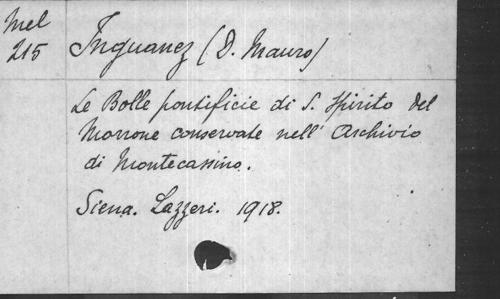 Mel
215
Inguanez (D. Mauro)
Le Bolle pontificie di S. Spirito del
Morrone conservate nell' Archivio
di Montecassino.
Siena. Lazzeri. 1918.